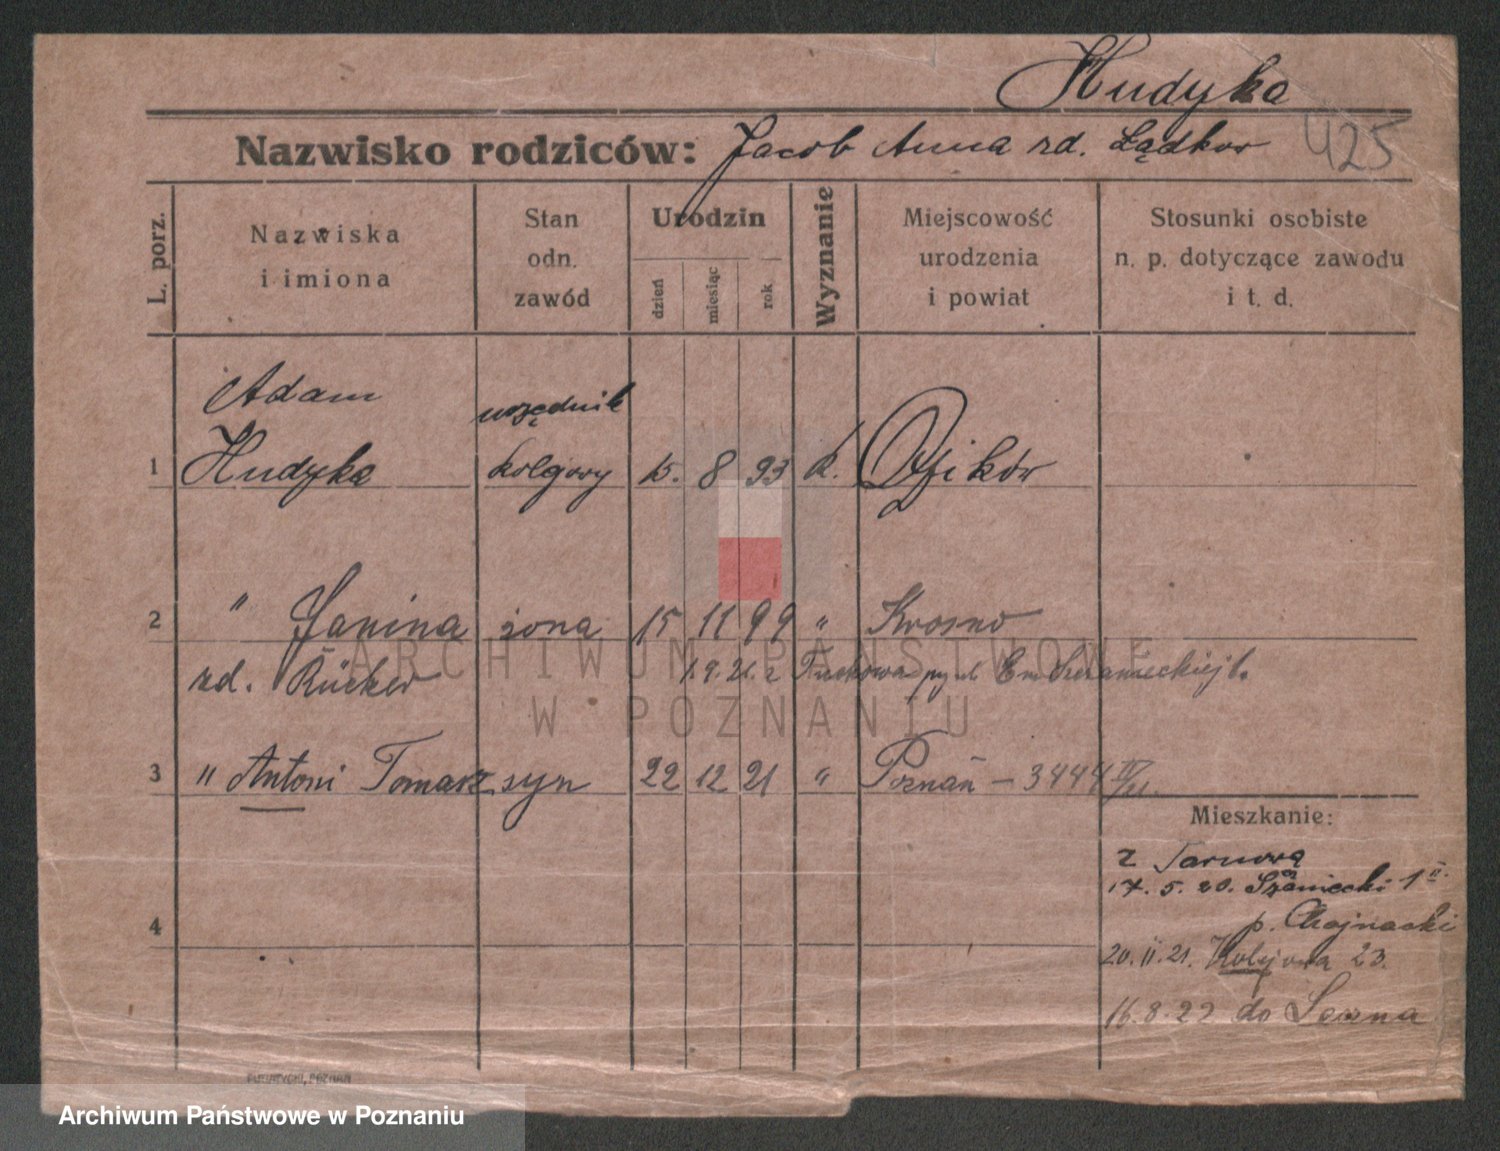 Hudyka
Nazwisko rodziców: Jacob Anna zd. Lądkor
425
L. porz.
Nazwiska
i imiona
Stan
odn.
zawód
Urodzin
dzień
miesiąc
rok
Wyznanie
Miejscowość
urodzenia
i powiat
Stosunki osobiste
n. p. dotyczące zawodu
i t. d.
Adam urzędnik
1 Hudyka kolejowy 15. 8 93 k. Dzików
2 " Janina żona 15 11 99 " Krosno
zd. Rücker 1.9.21. z
3 " Antoni Tomasz syn 22 12 21 " Poznań – 3444
Mieszkanie:
z Tarnowa
17. 5. 20. Szaniecki 1 II.
p. Chojnacki
4
20. II. 21. Kolejowa 23.
16. 8. 22 do
ARCHIWUM PAŃSTWOWE
W POZNANIU
Archiwum Państwowe w Poznaniu